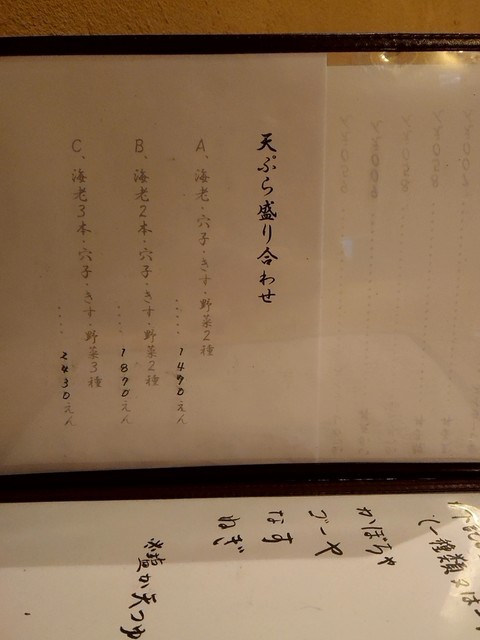 天ぷら盛り合わせ
A、海老・穴子・きす・野菜2種
‥‥1490えん
B、海老2本・穴子・きす・野菜2種
‥‥1890えん
C、海老3本・穴子・きす・野菜3種
‥‥2430えん
(一種類又は
かぼちゃ
ゴーヤ
なす
ねぎ
※塩か天つゆ